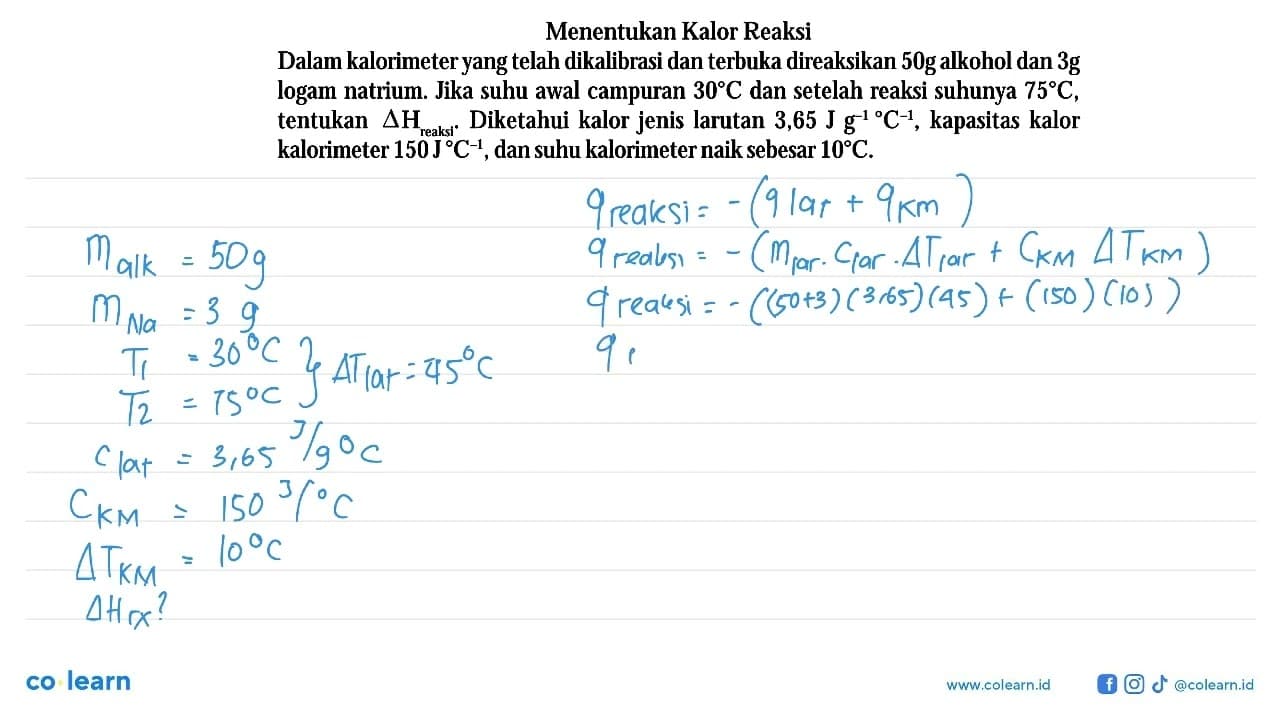 Menentukan Kalor Reaksi
Dalam kalorimeter yang telah dikalibrasi dan terbuka direaksikan 50g alkohol dan 3g
logam natrium. Jika suhu awal campuran 30°C dan setelah reaksi suhunya 75°C,
tentukan ΔH_reaksi. Diketahui kalor jenis larutan 3,65 J g⁻¹ °C⁻¹, kapasitas kalor
kalorimeter 150 J °C⁻¹, dan suhu kalorimeter naik sebesar 10°C.
m alk = 50 g
m Na = 3 g
T1 = 30°C
T2 = 75°C
} ΔT lar = 45°C
c lar = 3,65 J/g°C
C KM = 150 J/°C
ΔT KM = 10°C
ΔH rx?
q reaksi = -(q lar + q KM)
q reaksi = -(m lar. C lar. ΔT lar + C KM ΔT KM)
q reaksi = -((50+3)(3,65)(45) + (150)(10))
q r
co learn
www.colearn.id
@colearn.id